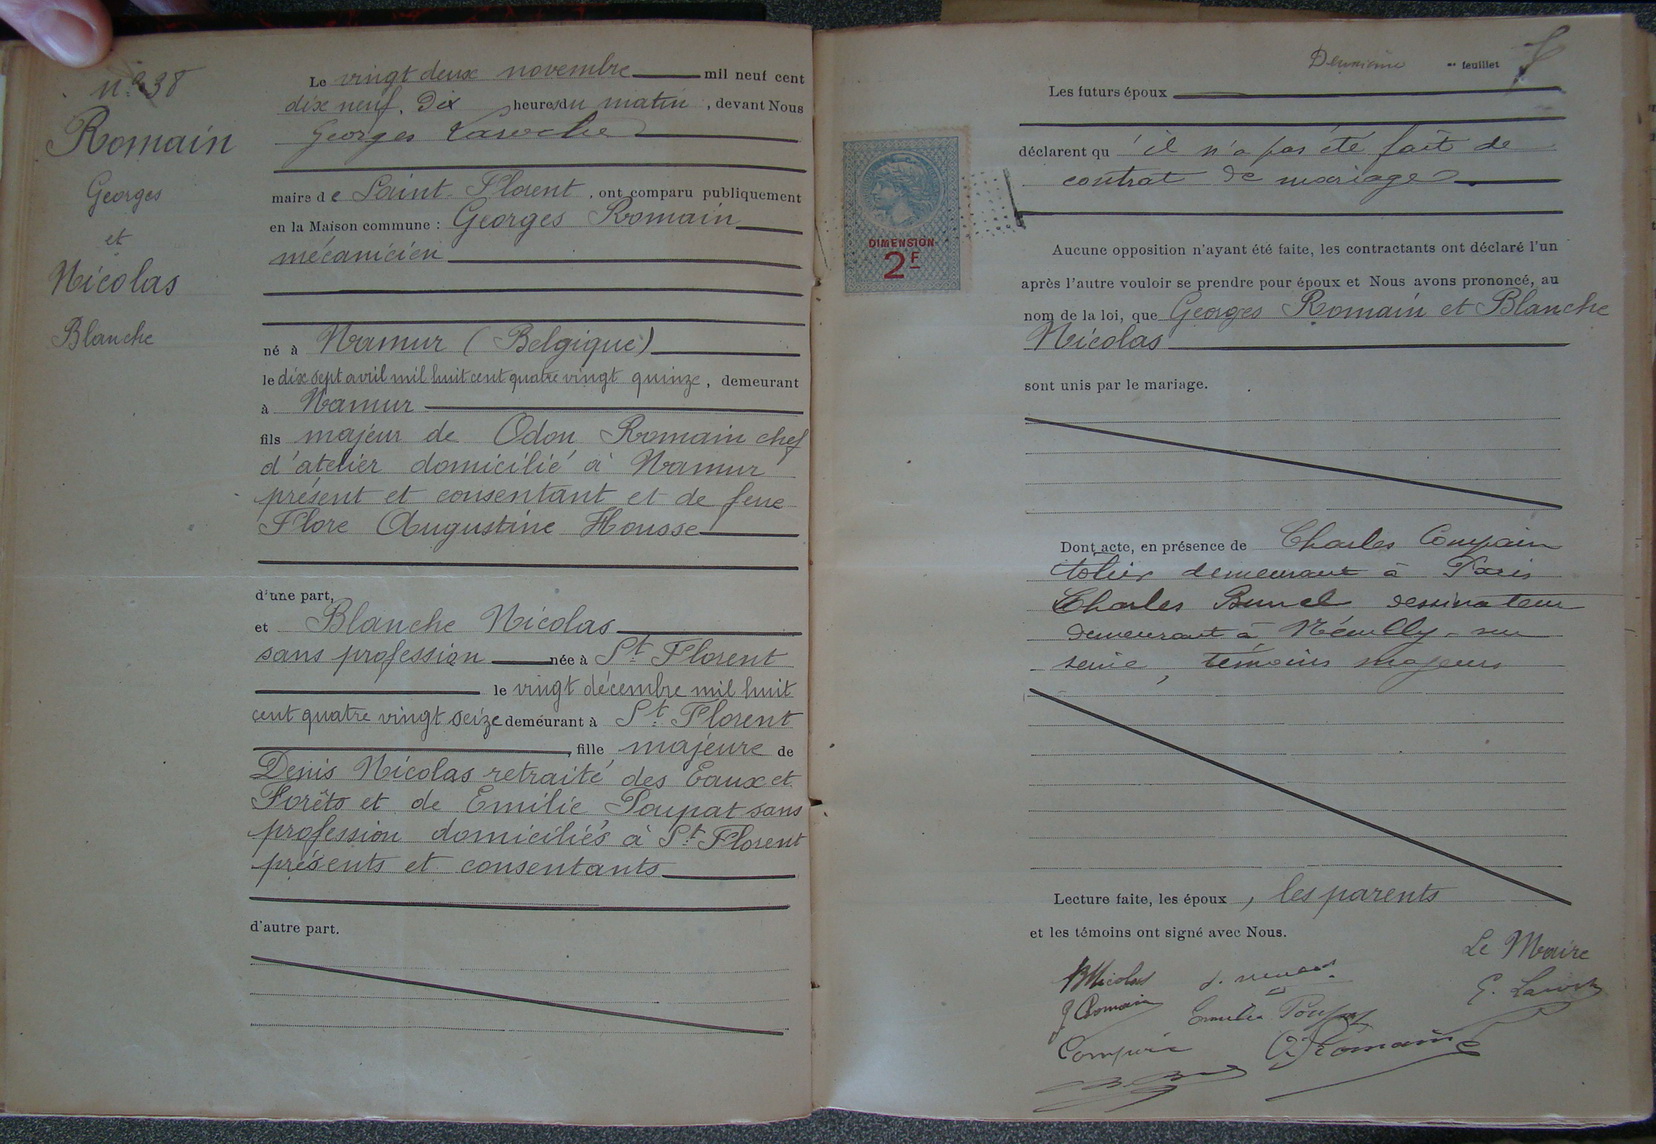 n° 38
Romain
Georges
et
Nicolas
Blanche
Le vingt deux novembre mil neuf cent
dix neuf, Dix heures du matin, devant Nous
Georges Laroche
maire de Saint-Florent, ont comparu publiquement
en la Maison commune : Georges Romain
mécanicien
né à Namur (Belgique)
le dix sept avril mil huit cent quatre vingt quinze, demeurant
à Namur
fils majeur de Odon Romain chef
d'atelier domicilié à Namur
présent et consentant et de feue
Flore Augustine Housse
d'une part,
et Blanche Nicolas
sans profession née à St Florent
le vingt décembre mil huit
cent quatre vingt seize demeurant à St Florent
, fille majeure de
Denis Nicolas retraité des Eaux et
Forêts et de Emilie Poupat sans
profession domiciliés à St Florent
présents et consentants
d'autre part.
Deuxième feuillet
Les futurs époux
déclarent qu'il n'a pas été fait de
contrat de mariage.
DIMENSION
2F
Aucune opposition n'ayant été faite, les contractants ont déclaré l'un
après l'autre vouloir se prendre pour époux et Nous avons prononcé, au
nom de la loi, que Georges Romain et Blanche
Nicolas
sont unis par le mariage.
Dont acte, en présence de Charles Compain
tôlier demeurant à Paris
Charles dessinateur
demeurant à Néuilly-sur
seine, témoins majeurs
Lecture faite, les époux, les parents
et les témoins ont signé avec Nous.
Le Maire
BNicolas
G. Laroche
G Romain
Emilie Poupat
O Romain